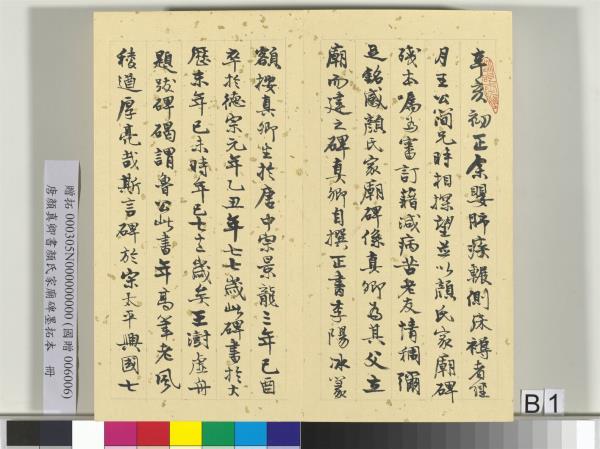 辛亥初正余嬰肺疾輾側床褥者經
月王公簡兄時相探望並以顏氏家廟碑
殘本囑為審訂藉減病苦老友情稠彌
足銘感顏氏家廟碑係真卿為其父立
廟而建之碑真卿自撰正書李陽冰篆
額按真卿生於唐中宗景龍三年己酉
卒於德宗元年乙丑年七七歲此碑書於大
歷末年己未時年已七十歲矣王澍虛舟
題跋碑碣謂魯公此書年高筆老風
稜遒厚亮哉斯言碑於宋太平興國七
贈拓 000305N000000000 (國贈 006006)
唐顏真卿書顏氏家廟碑墨拓本 冊
B 1